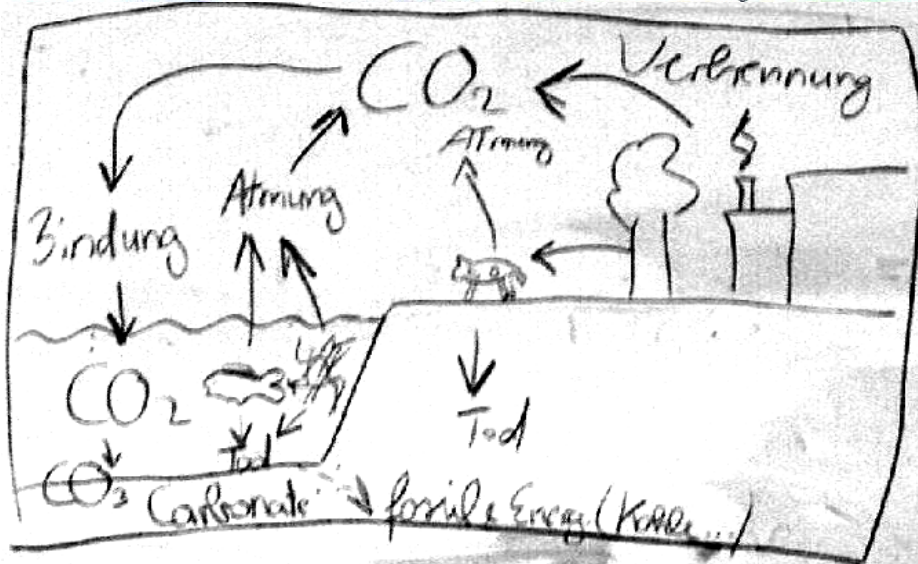 CO₂
Verbrennung
Atmung
Atmung
Bindung
CO₂
Tod
Tod
CO₃
Carbonate
fossile Energ (Kohle...)